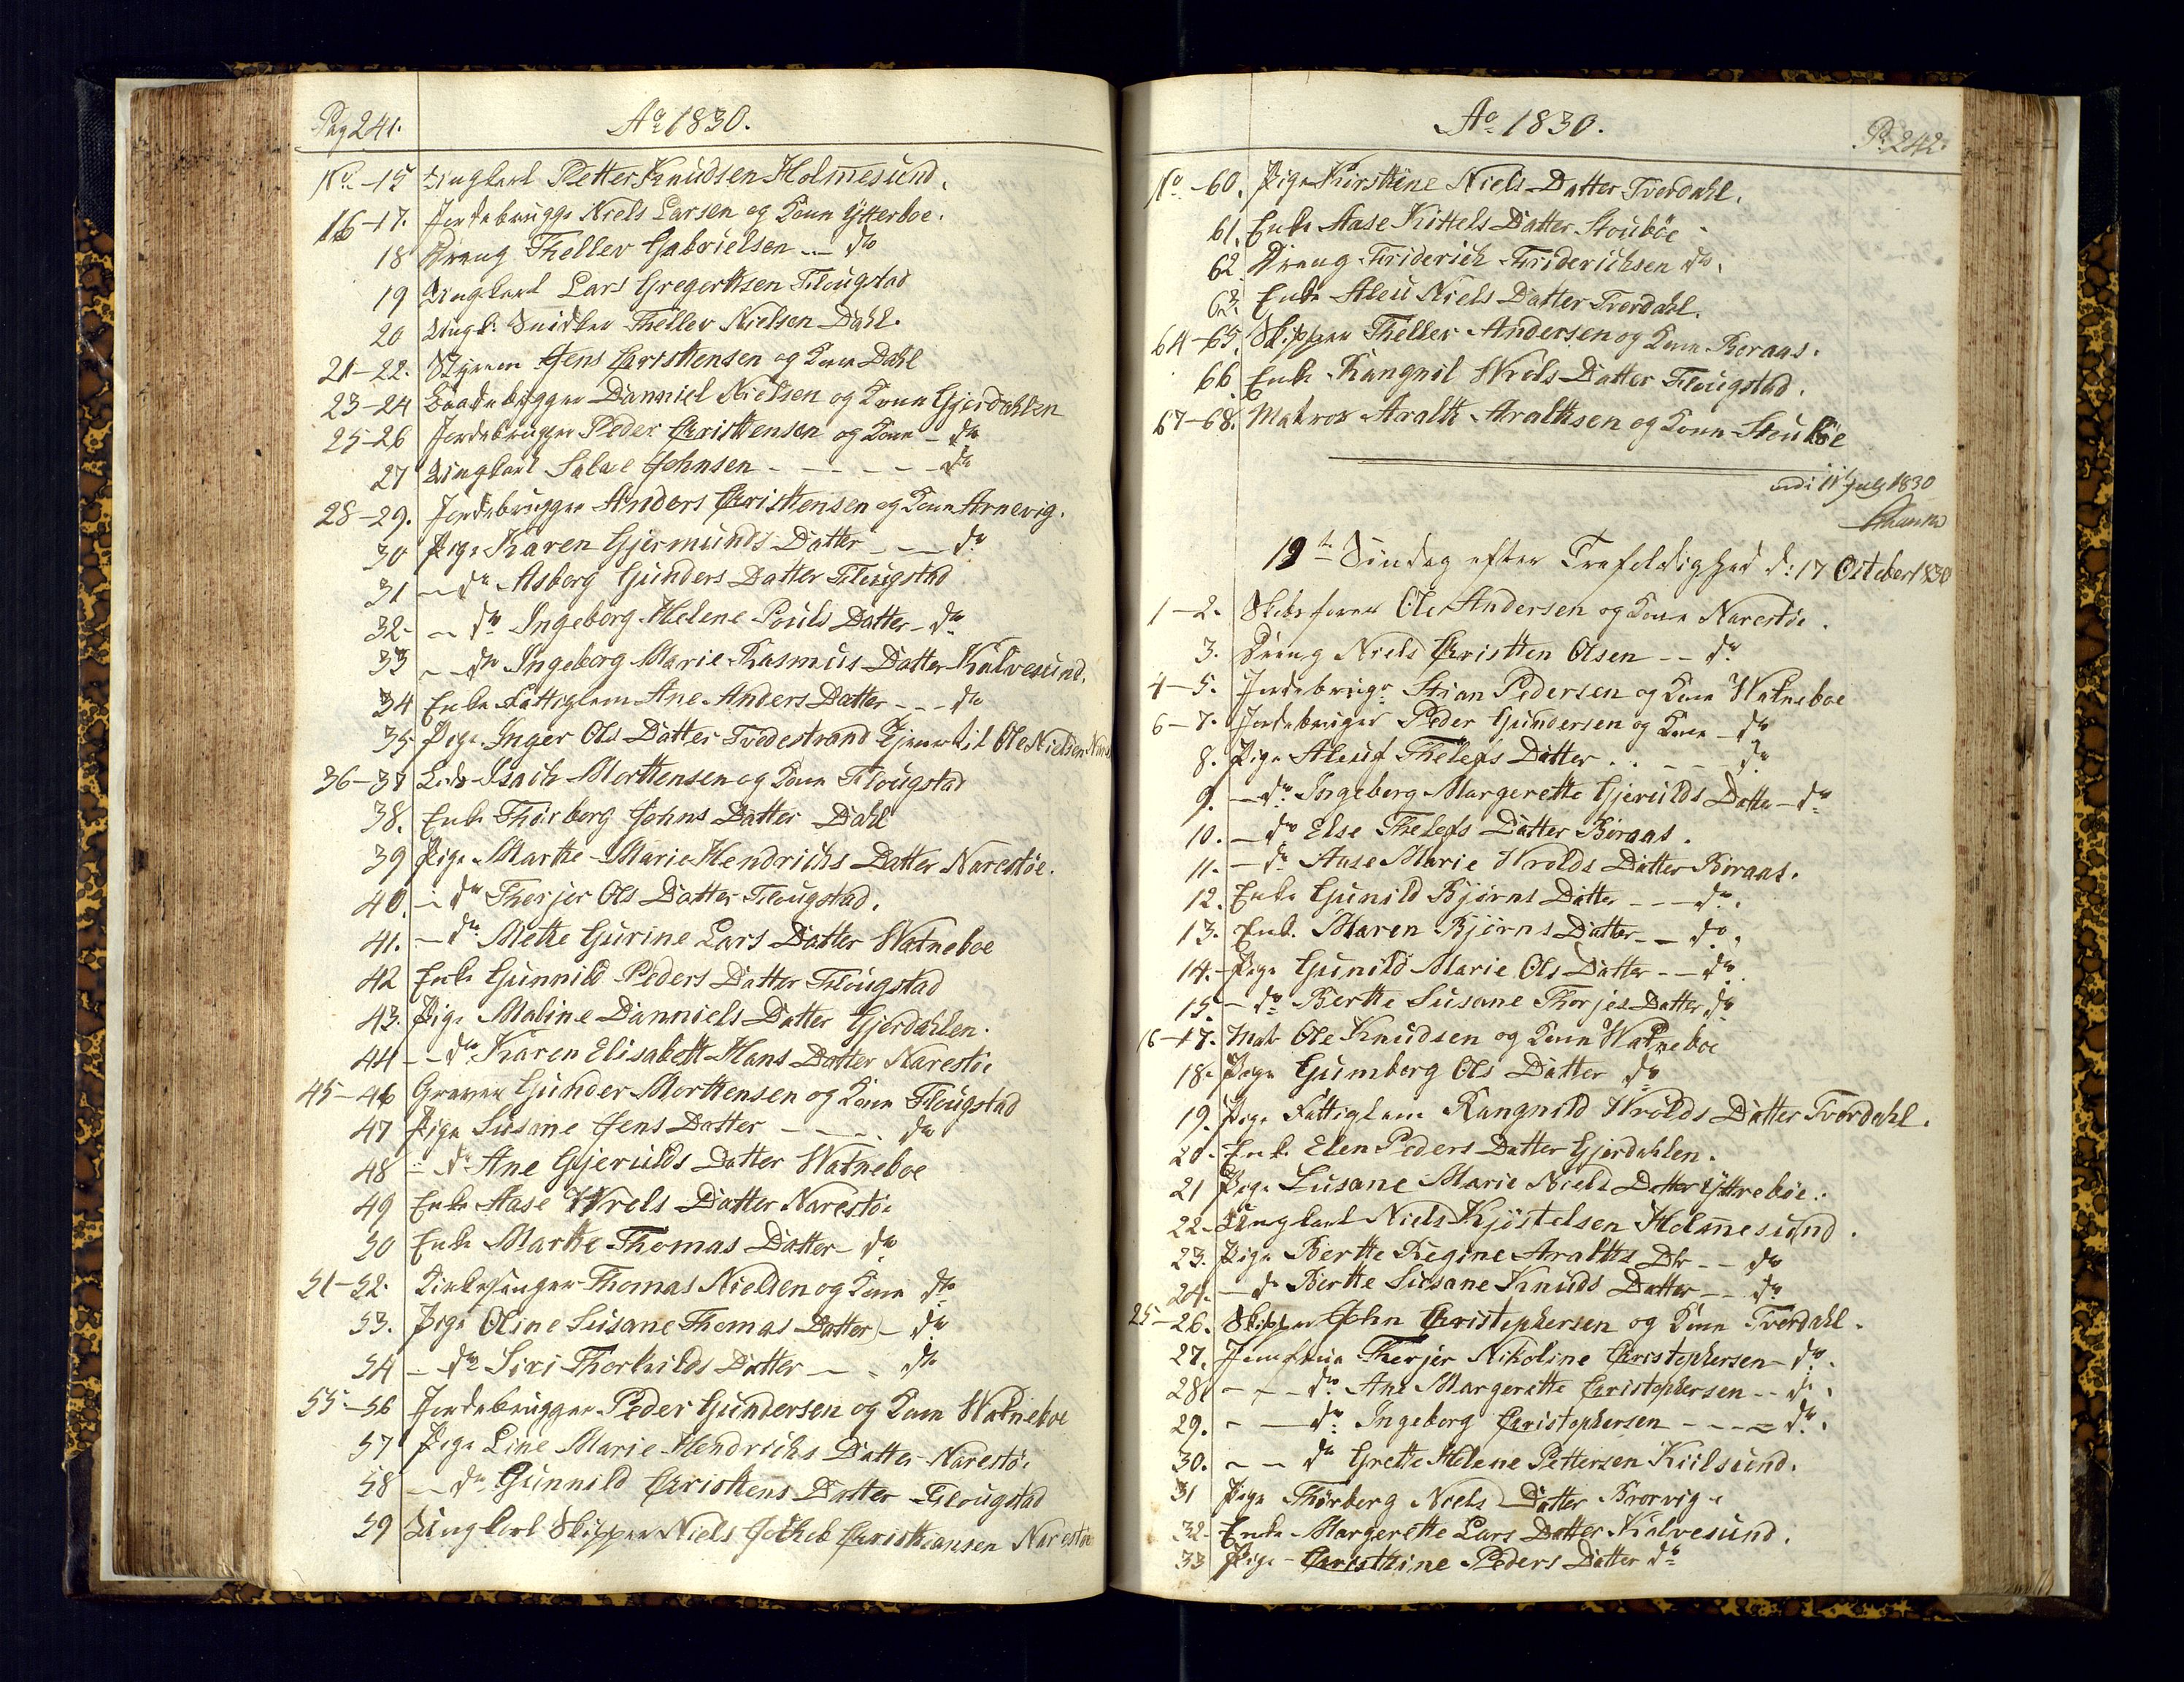 Pag 241. Ao 1830.
No -15 Ungkarl Petter Knudsen Holmesund.
16-17. Jordebrugge Niels Larsen og Kone Ytterboe.
18 Dreng Thellev Gabrielsen -- do
19 Ungkarl Lars Gregerttsen Flougstad
20 Ungk. Snidker Thellev Nielsen Dahl.
21-22. Styrm Jens Christtensen og Kone Dahl
23-24 Baadebygger Danniel Nielsen og Kone Gjerdahlen
25-26 Jordebruger Peder Christtensen og Kone - do
27 Ungkarl Salve Johnsen - - - - - do
28-29. Jordebrugger Anders Christtensen og Kone Arnevig.
30 Pige Karen Gjermunds Datter - - - do
31 - do Asborg Gunders Datter Flougstad
32. - do Ingeborg Helene Pouls Datter - do
33 - do Ingeborg Marie Rasmus Datter Kalvesund.
34 Enke Fattiglem Ane Anders Datter - - - do
35 Pige Inger Ols Datter Tvedestrand tjener til Ole Nielsen
36-37 Isach Morttensen og Kone Flougstad
38. Enke Thorborg Johns Datter Dahl
39 Pige Marthe Marie Hendrichs Datter Narestöe.
40. - do Therjer Ols Datter Flougstad.
41. - do Mette Gurine Lars Datter Watneboe
42 Enke Gunnild Peders Datter Flougstad
43. Pige Maline Danniels Datter Gjerdahlen.
44 - do Karen Elisabett Hans Datter Narestöe
45-46 Graver Gunder Morttensen og Kone Flougstad
47 Pige Susane Jens Datter - - - . do
48 - do Ane Gjerulds Datter Watneboe
49 Enke Aase Wrols Datter Narestöe
50 Enke Martte Thomas Datter - do
51-52. Kirkesanger Thomas Nielsen og Kone do
53. Pige Oline Susane Thomas Datter - do
54 - do Siri Thorkilds Datter - - do
55-56 Jordebrugger Peder Gundersen og Kone Watneboe
57 Pige Line Marie Hendrichs Datter Narestöe
58 - do Gunnild Christtens Datter Flougstad
59 Ungkarl Skipper Niels Jocheb Christtiansen Narestöe
Ao 1830. Pa 242.
No -60. Pige Kirsttine Niels Datter Tverdahl.
61. Enke Aase Kittels Datter Stouböe
62 Dreng Friderich Friderichsen do.
63. Enke Aleu Niels Datter Tverdahl.
64-65. Skipper Thellev Andersen og Kone Boraas.
66. Enke Rangnil Wrols Datter Flougstad.
67-68. Matros Aralth Aralthsen og Kone Stouböe
11 July 1830
19de Sindag efter Trefoldighed d: 17 October 1830
1-2. Skibsfører Ole Andersen og Kone Narestöe.
3. Dreng Niels Christten Olsen - - do
4-5. Jordebrugr Stian Pedersen og Kone Watneboe
6-7. Jordebruger Peder Gundersen og Kone - do
8. Pige Aleuf Thelefs Datter . . - - - do
9. - do Ingeborg Margerette Gjerulds Datter - do
10. - do Else Thelefs Datter Boraas.
11. - do Aase Marie Wrolds Datter Boraas.
12. Enke Gunild Bjørns Datter - - - do.
13. Enk. Maren Bjørns Datter - - do.
14. - Pige Gunild Marie Ols Datter - - do
15. - do Bertte Susane Thorjes Datter do
16-17. Mat Ole Knudsen og Kone Watneboe
18. Pige Gumborg Ols Datter do
19. Pige Fattiglem Rangnild Wrolds Datter Tverdahl.
20. Enke Elen Peders Datter Gjerdahlen.
21 Pige Susane Marie Niels Datter Yttreböe.
22. Ungkarl Niels Kjöstelsen Holmesund.
23. Pige Bertte Regine Araltts Dtr - - do
24. - do Bertte Susane Knuds Datter - - do
25-26. Skipper John Christophersen og Kone Tverdahl.
27. Jomfrue Therjer Nikoline Christophersen - do.
28. - - - do Ane Margerette Christophersen - - do.
29. - - do Ingeborg Christophersen - - - - do.
30. - - do Grette Helene Pettersen Kiilsund.
31 Pige Thørberg Niels Datter Brorvig
32. Enke Margerette Lars Datter Kalvesund.
33 Pige Christtine Peders Datter do